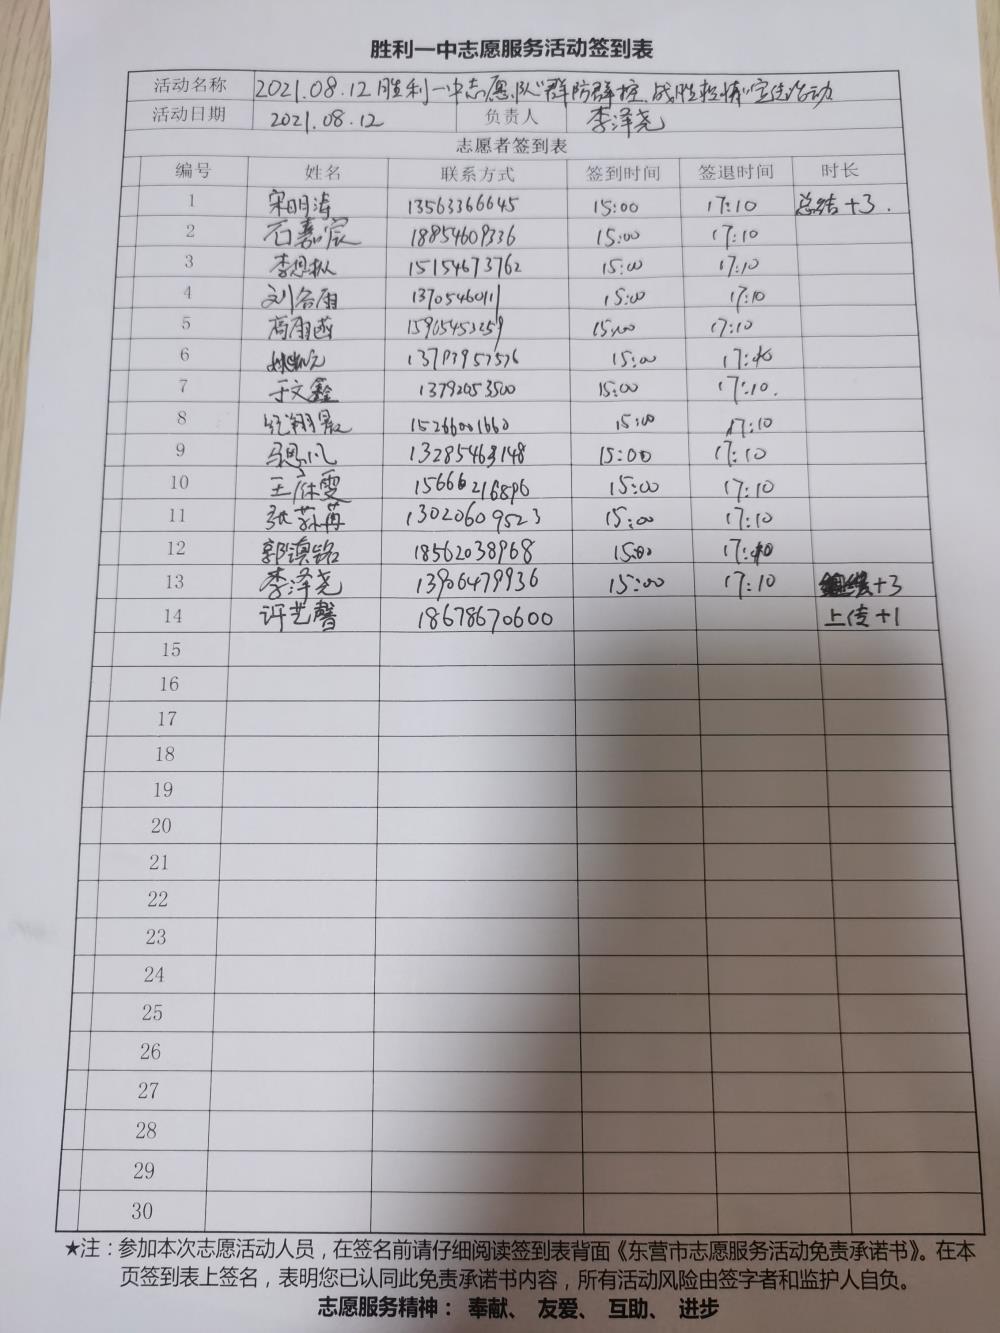 胜利一中志愿服务活动签到表
活动名称 2021.08.12胜利一中志愿队“群防群控,战胜疫情”宣传活动
活动日期 2021.08.12 负责人 李泽尧
志愿者签到表
编号 姓名 联系方式 签到时间 签退时间 时长
1 宋明涛 13563366645 15:00 17:10 总结+3.
2 石嘉宸 18854609336 15:00 17:10
3 李思枞 15154673762 15:00 17:10
4 刘谷雨 1370546011 15:00 17:10
5 高雨菡 15905453259 15:00 17:10
6 15:00 17:10
7 于文鑫 13792053500 15:00 17:10.
8 15266001660 15:00 17:10
9 13285463148 15:00 17:10
10 王庥雯 15666216896 15:00 17:10
11 张荪苒 13020609523 15:00 17:10
12 郭滇铭 18562038968 15:00 17:10
13 李泽尧 13906479936 15:00 17:10 +3
14 许艺馨 18678670600 上传+1
15
16
17
18
19
20
21
22
23
24
25
26
27
28
29
30
★注：参加本次志愿活动人员，在签名前请仔细阅读签到表背面《东营市志愿服务活动免责承诺书》。在本
页签到表上签名，表明您已认同此免责承诺书内容，所有活动风险由签字者和监护人自负。
志愿服务精神： 奉献、 友爱、 互助、 进步